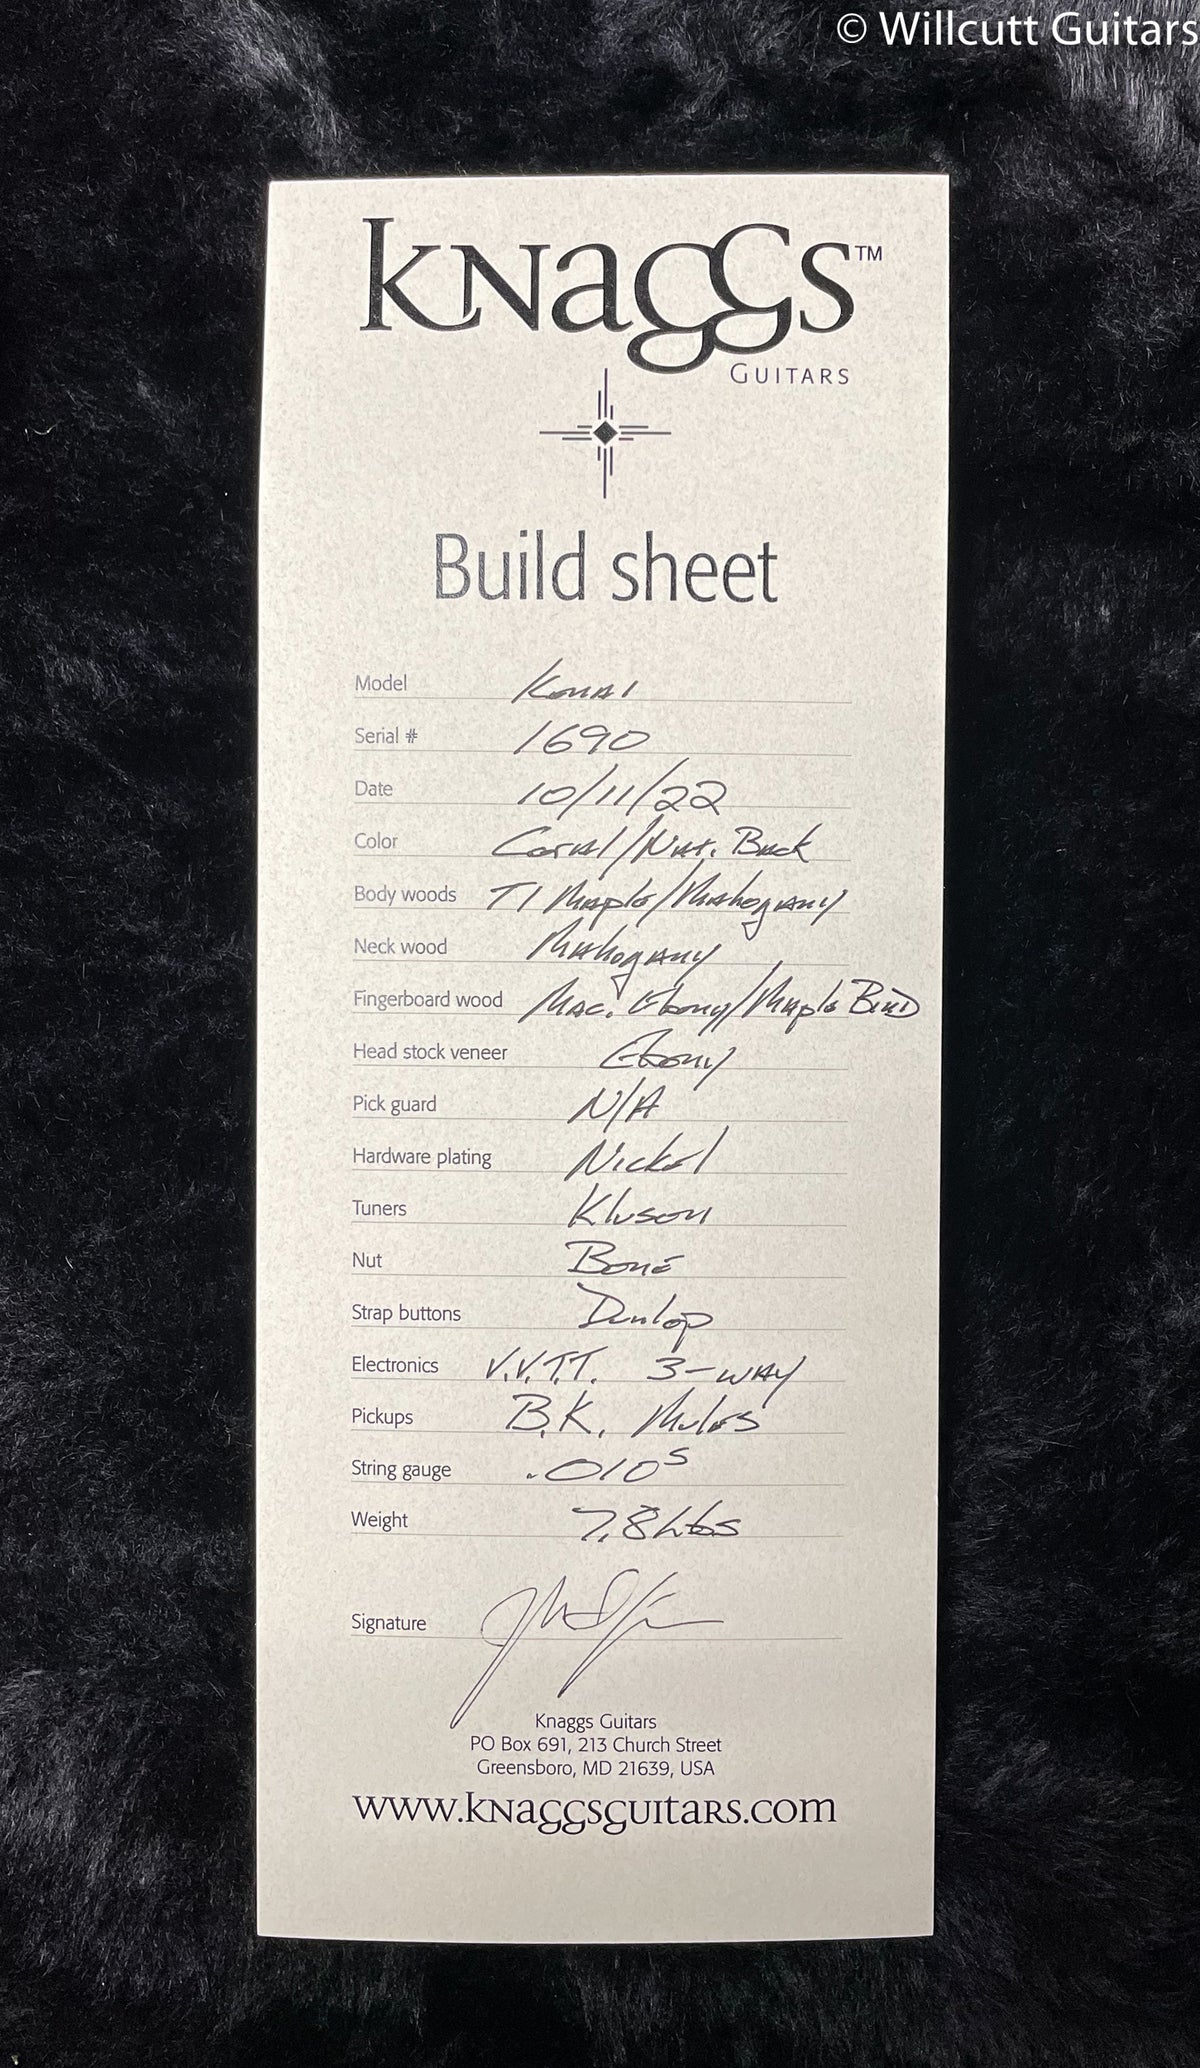 © Willcutt Guitars
Knaggs™
Guitars
Build sheet
Model Kenai
Serial # 1690
Date 10/11/22
Color Coral/Nat. Back
Body woods T1 Maple/Mahogany
Neck wood Mahogany
Fingerboard wood Mac. Ebony/Maple Bind
Head stock veneer Ebony
Pick guard N/A
Hardware plating Nickel
Tuners Kluson
Nut Bone
Strap buttons Dunlop
Electronics V.V.T.T. 3-way
Pickups B.K. Mules
String gauge .010s
Weight 7.8 Lbs
Signature
Knaggs Guitars
PO Box 691, 213 Church Street
Greensboro, MD 21639, USA
www.knaggsguitars.com